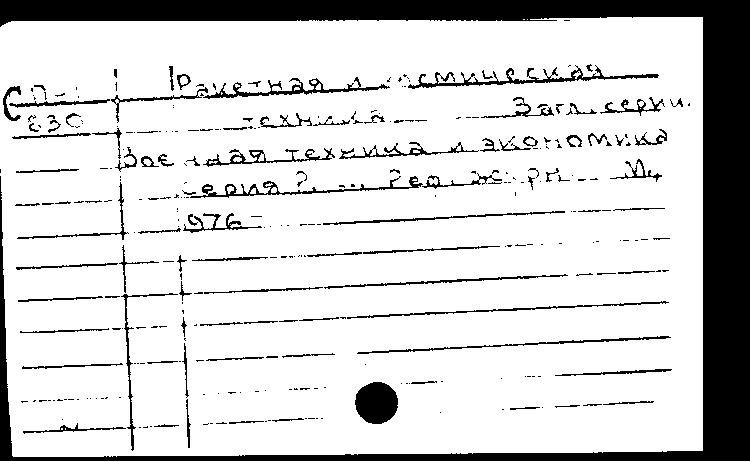 СП-1 Ракетная и космическая
830 техника Загл. серии.
Военная техника и экономика
Серия 2. ... Реф. журн. М.,
1976-